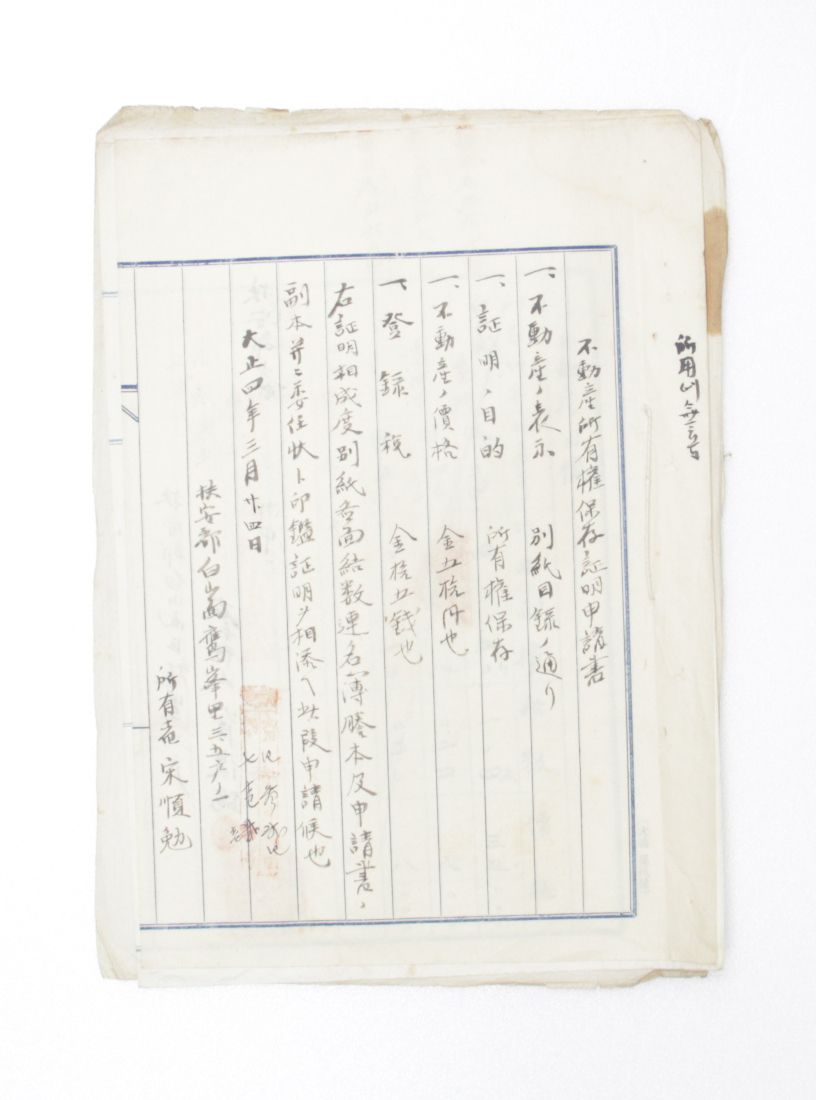 不動産所有権保存証明申請書
一、不動産ノ表示 別紙目録ノ通リ
一、証明ノ目的 所有権保存
一、不動産ノ價格 金五拾円也
一、登録税 金拾五錢也
右証明相成度別紙 面結数連名簿謄本及申請書ノ
副本并ニ委任状ト印鑑証明ヲ相添ヘ此段申請候也
大正四年三月廿四日
扶安郡白山面鷹峯里三五六ノ一
所有者宋順勉